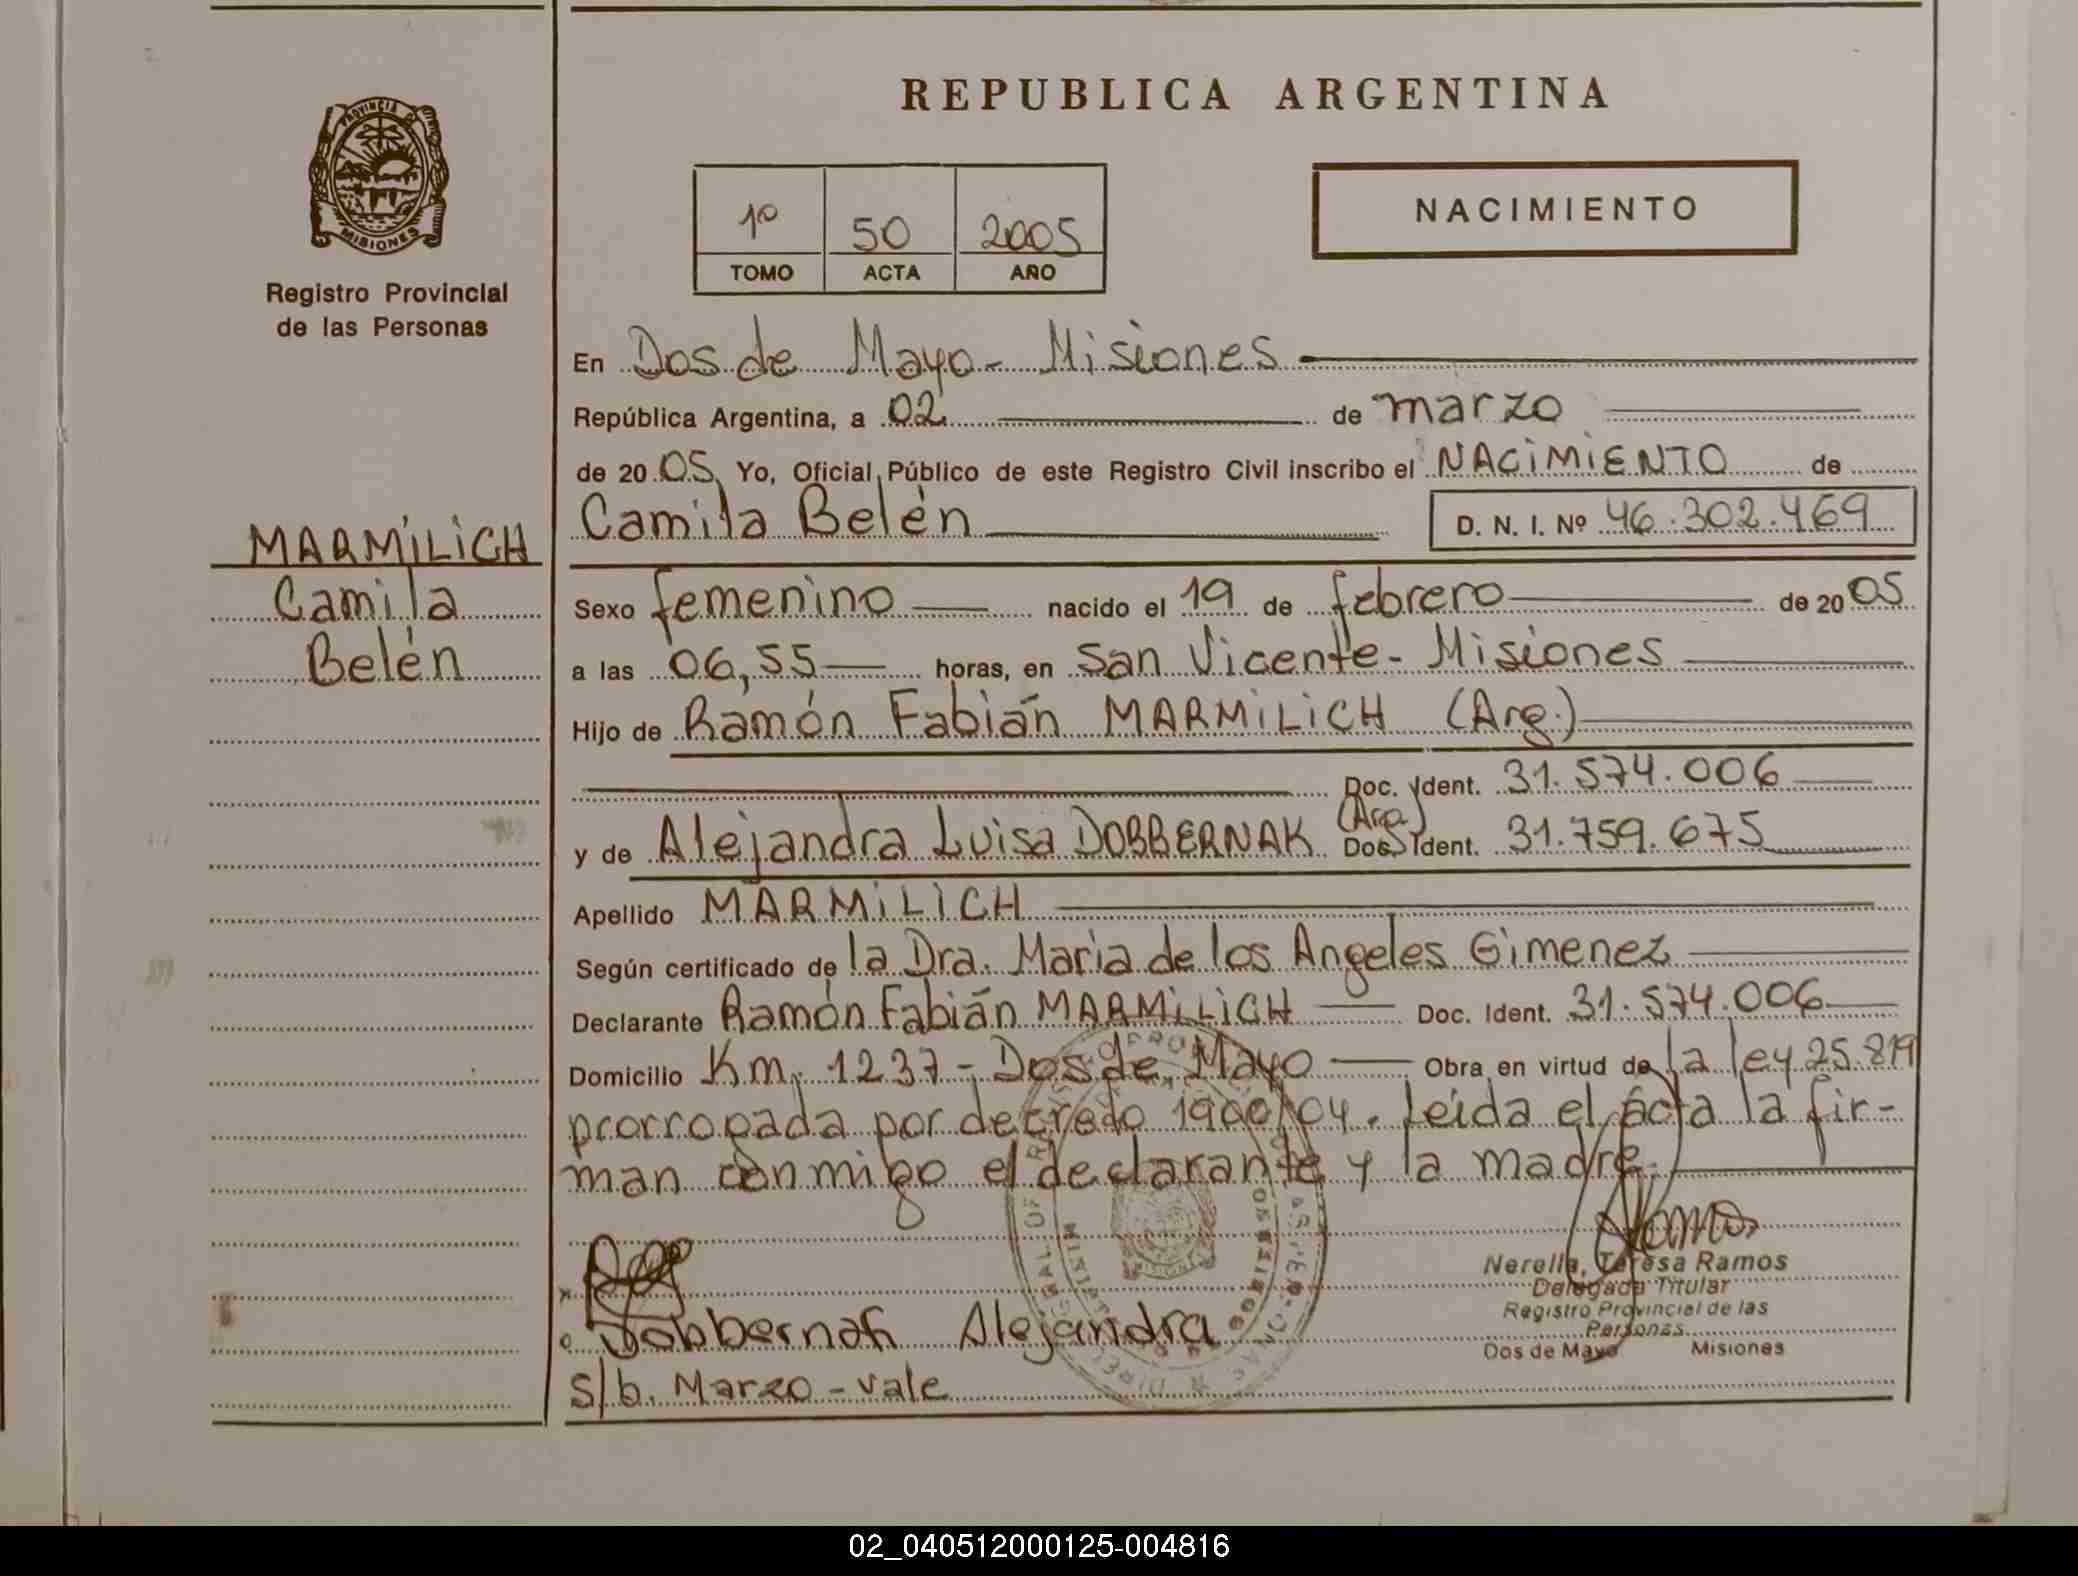 REPUBLICA ARGENTINA
PROVINCIA DE
MISIONES
Registro Provincial
de las Personas
1º 50 2005
TOMO ACTA AÑO
NACIMIENTO
En Dos de Mayo - Misiones
República Argentina, a 02 de marzo
de 2005 Yo, Oficial Público de este Registro Civil inscribo el NACIMIENTO de
Camila Belén D. N. I. Nº 46.302.469
MARMILICH
Camila
Belén
Sexo femenino nacido el 19 de febrero de 2005
a las 06,55 horas, en San Vicente - Misiones
Hijo de Ramón Fabián MARMILICH (Arg.)
Doc. Ident. 31.574.006
y de Alejandra Luisa DOBBERNAK (Arg) Doc. Ident. 31.759.675
Apellido MARMILICH
Según certificado de la Dra. Maria de los Angeles Gimenez
Declarante Ramón Fabián MARMILICH Doc. Ident. 31.574.006
Domicilio Km. 1237 - Dos de Mayo Obra en virtud de la ley 25.819
prorrogada por decreto 1900/04. Leída el acta la fir-
man conmigo el declarante y la madre.
Nerella, Teresa Ramos
Delegada Titular
Registro Provincial de las
Personas
Dos de Mayo Misiones
Dobbernak Alejandra
S/b. Marzo - vale
02_040512000125-004816